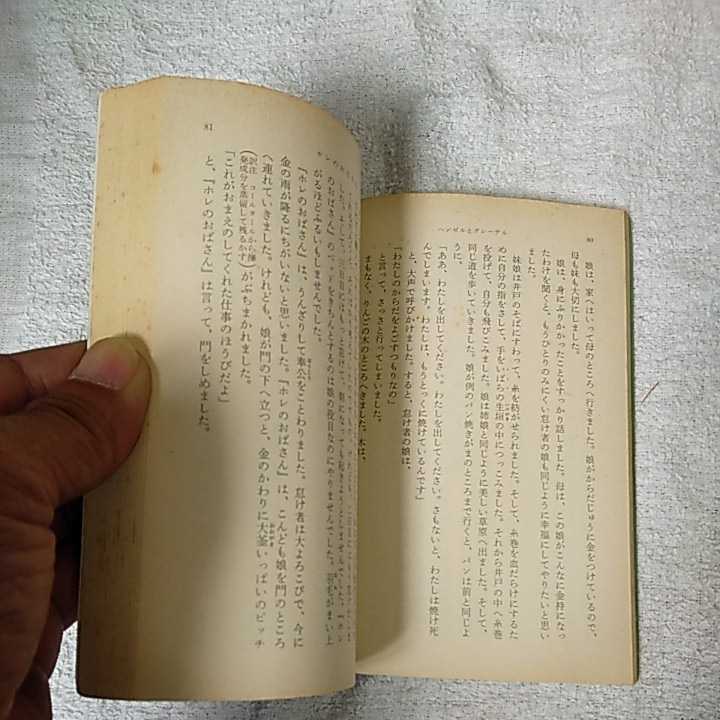 ヘンゼルとグレーテル
80
娘は、家へはいって母のところへ行きました。娘がからだじゅうに金をつけているので、
母も妹も大切にしました。
娘は、身にふりかかったことをすっかり話しました。母は、この娘がこんなに金持になっ
たわけを聞くと、もうひとりのみにくい怠け者の娘も同じように幸福にしてやりたいと思い
ました。
妹娘は井戸のそばにすわって、糸を紡がせられました。そして、糸巻を血だらけにするた
めに自分の指をさして、手をいばらの生垣の中につっこみました。それから井戸の中へ糸巻
を投げて、自分も飛びこみました。娘は姉娘と同じように美しい草原へ出ました。そして、
同じ道を歩いていきました。娘が例のパン焼きがまのところまで行くと、パンは前と同じよ
うに、
「ああ、わたしを出してください。わたしを出してください。さもないと、わたしは焼け死
んでしまいます。わたしは、もうとっくに焼けているんです」
と、大声で呼びかけました。すると、怠け者の娘は、
「わたしのからだをよごすつもりなの」
と言って、さっさと行ってしまいました。
まもなく、りんごの木のところへきました。木は、
81
のおばさん』の
をきちんとするのは娘の役目なのにやりませんでした。羽毛がまい上
がるほどふるいもしませんでした。
『ホレのおばさん』は、うんざりして奉公をことわりました。怠け者は大よろこびで、今に
金の雨が降るにちがいないと思いました。『ホレのおばさん』は、こんども娘を門のところ
へ連れていきました。けれども、娘が門の下へ立つと、金のかわりに大釜いっぱいのピッチ
(訳注 コールタールから揮発成分を蒸留して残るかす)がぶちまかれました。
「これがおまえのしてくれた仕事のほうびだよ」
と、『ホレのおばさん』は言って、門をしめました。